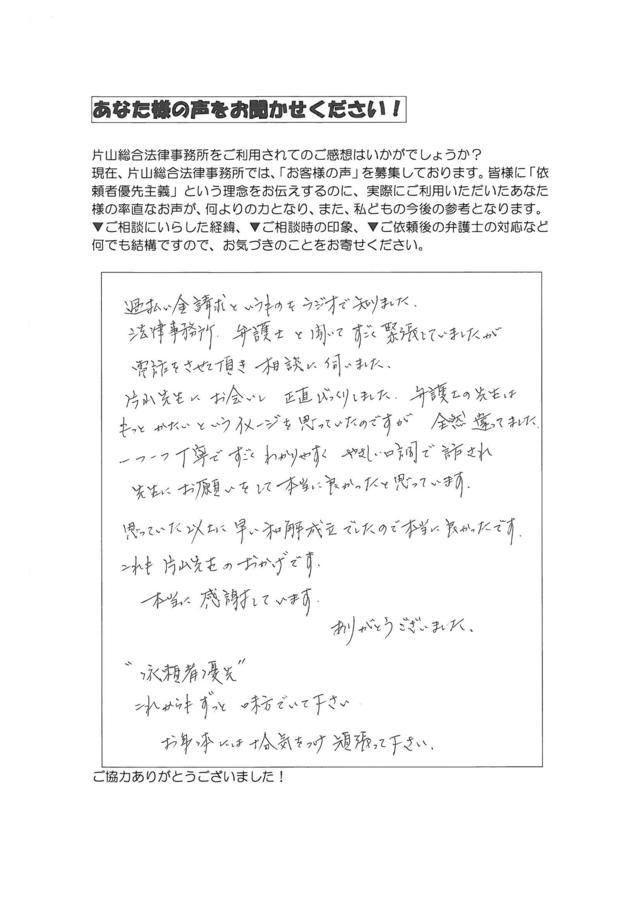 あなた様の声をお聞かせください！
片山総合法律事務所をご利用されてのご感想はいかがでしょうか？
現在、片山総合法律事務所では、「お客様の声」を募集しております。皆様に「依
頼者優先主義」という理念をお伝えするのに、実際にご利用いただいたあなた
様の率直なお声が、何よりの力となり、また、私どもの今後の参考となります。
▼ご相談にいらした経緯、▼ご相談時の印象、▼ご依頼後の弁護士の対応など
何でも結構ですので、お気づきのことをお寄せください。
過払い金請求というものをラジオで知りました。
法律事務所、弁護士と聞いてすごく緊張していましたが
電話をさせて頂き相談に伺いました。
片山先生にお会いし正直びっくりしました。弁護士の先生は
もっとかたいというイメージを思っていたのですが全然違ってました。
一つ一つ丁寧ですごくわかりやすくやさしい口調で話され
先生にお願いをして本当に良かったと思っています。
思っていた以上に早い和解成立でしたので本当に良かったです。
これも片山先生のおかげです。
本当に感謝しています。
ありがとうございました。
"依頼者優先"
これからもずっと味方でいて下さい
お身体には十分気をつけ頑張って下さい。
ご協力ありがとうございました！